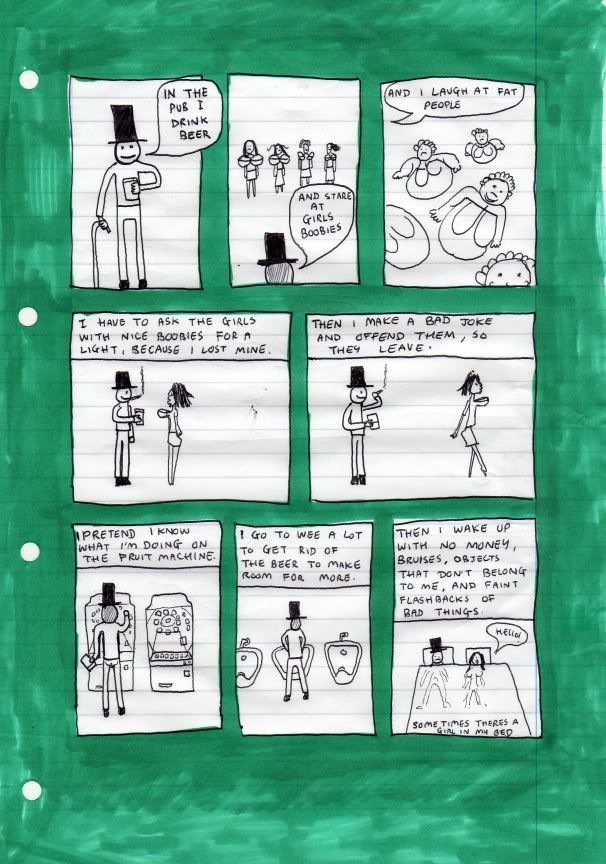 IN THE
PUB I
DRINK
BEER
AND STARE
AT
GIRLS
BOOBIES
AND I LAUGH AT FAT
PEOPLE
I HAVE TO ASK THE GIRLS
WITH NICE BOOBIES FOR A
LIGHT, BECAUSE I LOST MINE.
THEN I MAKE A BAD JOKE
AND OFFEND THEM, SO
THEY LEAVE.
I PRETEND I KNOW
WHAT I'M DOING ON
THE FRUIT MACHINE.
I GO TO WEE A LOT
TO GET RID OF
THE BEER TO MAKE
ROOM FOR MORE.
THEN I WAKE UP
WITH NO MONEY,
BRUISES, OBJECTS
THAT DON'T BELONG
TO ME, AND FAINT
FLASHBACKS OF
BAD THINGS.
HELLO!
SOMETIMES THERES A
GIRL IN MY BED